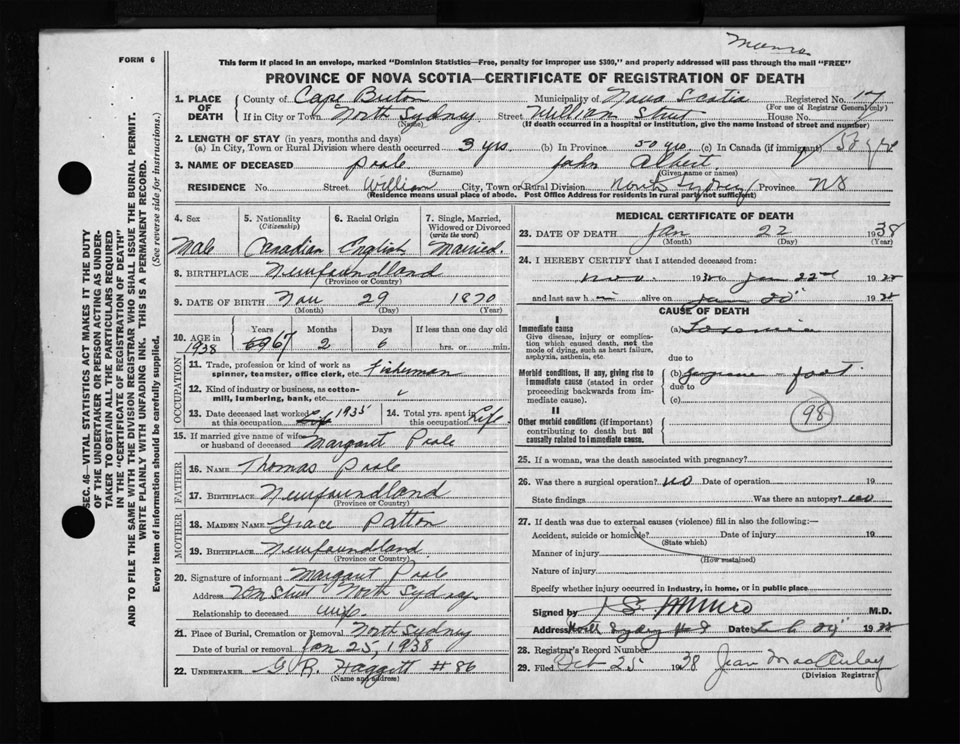 Munro
FORM 6
This form if placed in an envelope, marked "Dominion Statistics—Free, penalty for improper use $300," and properly addressed will pass through the mail "FREE"
PROVINCE OF NOVA SCOTIA—CERTIFICATE OF REGISTRATION OF DEATH
SEC. 46—VITAL STATISTICS ACT MAKES IT THE DUTY
OF THE UNDERTAKER OR PERSON ACTING AS UNDER-
TAKER TO OBTAIN ALL THE PARTICULARS REQUIRED
IN THE "CERTIFICATE OF REGISTRATION OF DEATH"
AND TO FILE THE SAME WITH THE DIVISION REGISTRAR WHO SHALL ISSUE THE BURIAL PERMIT.
WRITE PLAINLY WITH UNFADING INK. THIS IS A PERMANENT RECORD.
Every item of information should be carefully supplied. (See reverse side for instructions.)
1. PLACE OF DEATH County of Cape Breton Municipality of Nova Scotia Registered No. 17
(For use of Registrar General only)
If in City or Town North Sydney Street William Street House No.
(Name) (If death occurred in a hospital or institution, give the name instead of street and number)
2. LENGTH OF STAY (in years, months and days)
(a) In City, Town or Rural Division where death occurred 3 yrs. (b) In Province 50 yrs. (c) In Canada (if immigrant)
3. NAME OF DECEASED Poole John Albert
(Surname) (Given name or names)
RESIDENCE No. Street William City, Town or Rural Division North Sydney Province NS
(Residence means usual place of abode. Post Office Address for residents in rural parts not sufficient)
4. Sex 5. Nationality (Citizenship) 6. Racial Origin 7. Single, Married, Widowed or Divorced (write the word)
Male Canadian English Married.
8. BIRTHPLACE Newfoundland
(Province or Country)
9. DATE OF BIRTH Nov 29 1870
(Month) (Day) (Year)
10. AGE in 1938 Years Months Days If less than one day old
67 2 6 hrs. or min.
OCCUPATION
11. Trade, profession or kind of work as spinner, teamster, office clerk, etc. Fisherman
12. Kind of industry or business, as cotton-mill, lumbering, bank, etc.
13. Date deceased last worked at this occupation 1935 14. Total yrs. spent in this occupation Life.
15. If married give name of wife or husband of deceased Margaret Poole
FATHER
16. NAME Thomas Poole
17. BIRTHPLACE Newfoundland
(Province or Country)
MOTHER
18. MAIDEN NAME Grace Patton
19. BIRTHPLACE Newfoundland
(Province or Country)
20. Signature of informant Margaret Poole
Address Wm Street North Sydney
Relationship to deceased wife.
21. Place of Burial, Cremation or Removal North Sydney
Date of burial or removal Jan 25, 1938
22. UNDERTAKER G. R. Haggett #86
(Name and address)
MEDICAL CERTIFICATE OF DEATH
23. DATE OF DEATH Jan 22 1938
(Month) (Day) (Year)
24. I HEREBY CERTIFY that I attended deceased from:
Nov. 19 to Jan 22nd 19
and last saw h im alive on Jan 19
CAUSE OF DEATH
I
Immediate cause (a) Toxemia
Give disease, injury or complica-
tion which caused death, not the
mode of dying, such as heart failure,
asphyxia, asthenia, etc.
due to
Morbid conditions, if any, giving rise to (b) Gangrene — foot
immediate cause (stated in order
proceeding backwards from im-
mediate cause). due to
(c)
II
Other morbid conditions (if important)
contributing to death but not
causally related to immediate cause.
98
25. If a woman, was the death associated with pregnancy?
26. Was there a surgical operation? no Date of operation 19
State findings Was there an autopsy? no
27. If death was due to external causes (violence) fill in also the following:—
Accident, suicide or homicide? Date of injury 19
(State which)
Manner of injury
(How sustained)
Nature of injury
Specify whether injury occurred in industry, in home, or in public place
Signed by Munro M.D.
Address North Sydney N S Date 19
28. Registrar's Record Number
29. Filed Oct 25 1938 Jean MacAulay
(Division Registrar)